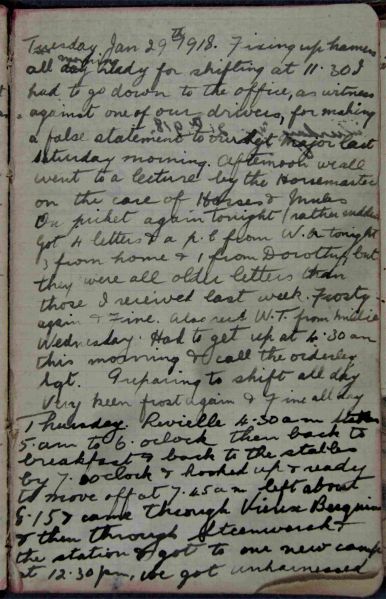 Tuesday Jan 29th 1918. Fixing up harness
all morning ready for shifting at 11.30 I
had to go down to the office, as witness
against one of our drivers, for making
a false statement to our Sgt Major last
Saturday morning. Afternoon we all
went to a lecture by the Horsemaster
on the care of Horses & Mules
On picket again tonight, rather sudden
Got 4 letters & a p.c from W.A tonight
3 from home & 1 from Dorothy, but
they were all older letters than
those I received last week. Frosty
again & Fine. Also recd W.T. from
Wednesday. Had to get up at 4.30 am
this morning & call the orderley
Sgt. Preparing to shift all day
Very keen frost again & Fine all day
Thursday. Revielle 4.30 am
5. am to 6. oclock then back to
breakfast & back to the stables
by 7. oclock & hooked up & ready
to move off at 7.45 a.m. left about
8.15 & came through Vieux Berquin
& then through Steenwerck &
the station & got to our new camp
at 12.30 pm, we got unharnessed